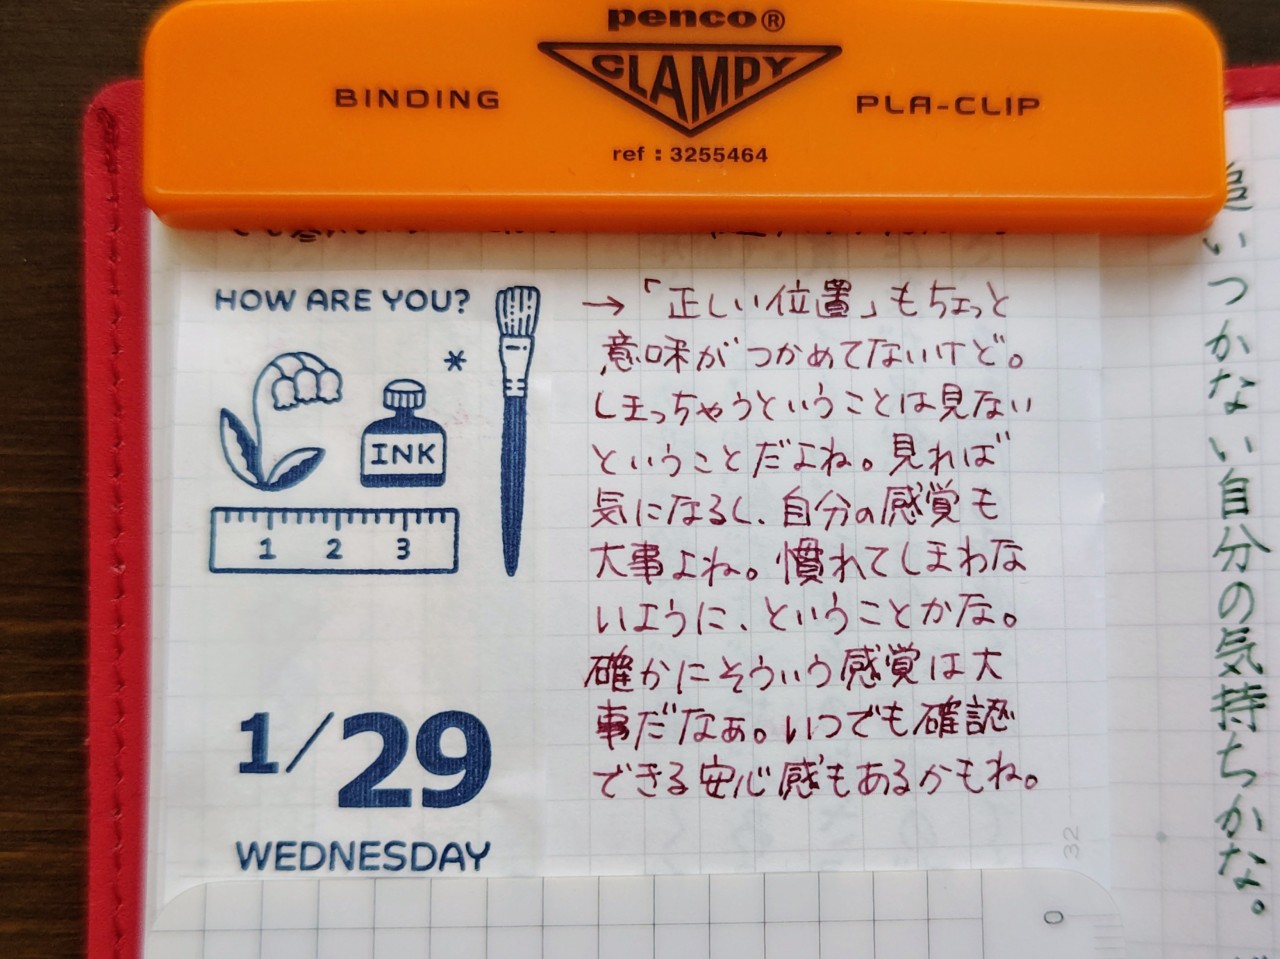 penco®
CLAMPY
BINDING
PLA-CLIP
ref : 3255464
HOW ARE YOU?
INK
1 2 3
1/29
WEDNESDAY
→「正しい位置」もちょっと
意味がつかめてないけど。
しまっちゃうということは見ない
ということだよね。見れば
気になるし、自分の感覚も
大事よね。慣れてしまわな
いように、ということかな。
確かにそういう感覚は大
事だなぁ。いつでも確認
できる安心感もあるかもね。
32
0
追いつかない自分の気持ちかな。